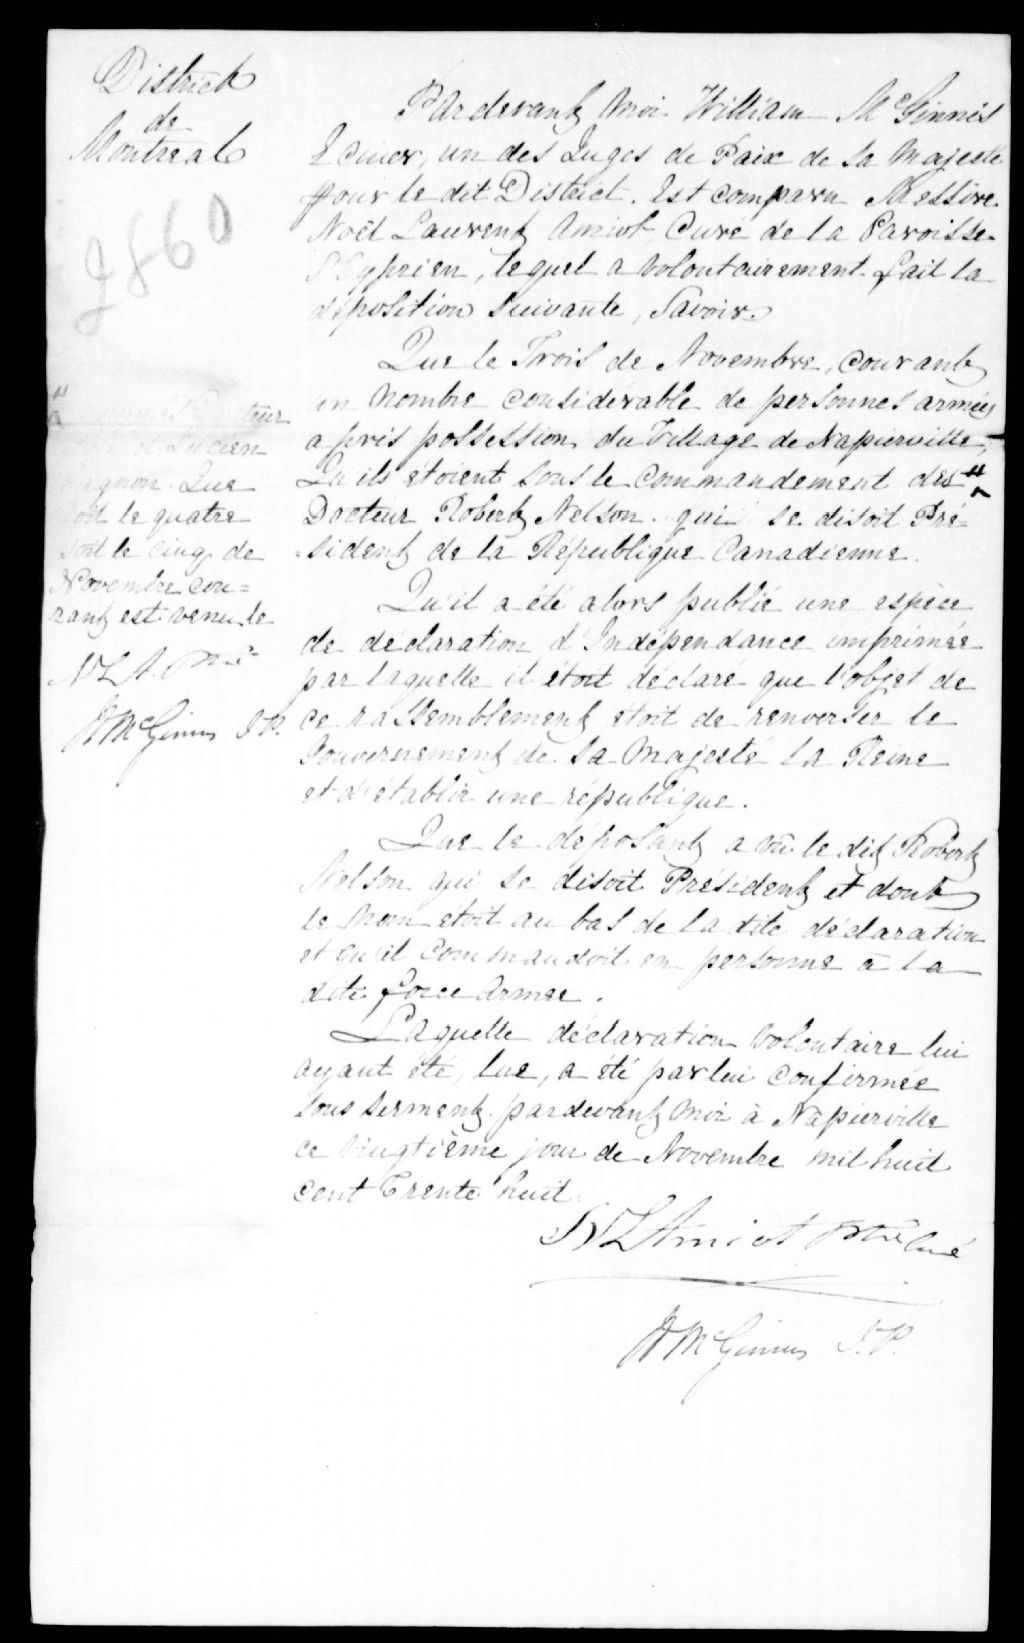 District
de
Montreal
2860
Pardevant Moi William McGinnis
Ecuier, un des Juges de Paix de Sa Majesté
pour le dit District. Est comparu Messire
Noël Laurent Amiot Curé de la Paroisse
St Cyprien, lequel a volontairement fait la
déposition Suivante, Savoir.
Que le Trois de Novembre, courant
un Nombre considérable de personnes armées
a pris possession du Village de Napierville;
Qu'ils étoient sous le commandement des "
Docteur Robert Nelson qui se disoit Pré=
=sident de la République Canadienne.
Qu'il a été alors publié une espèce
de déclaration d'Indépendance imprimée
par laquelle il étoit déclaré que l'objet de
ce rassemblement étoit de renverser le
Gouvernement de Sa Majesté La Reine
et d'établir une république.
Que le déposant a vû le dit Robert
Nelson qui se disoit Président et dont
le Nom étoit au bas de la dite déclaration
et qu'il commandoit en personne à la
dite force Armee.
Laquelle déclaration Volontaire lui
ayant été, lue, a été par lui confirmée
sous serment pardevant Moi à Napierville
ce vingtième jour de Novembre mil huit
cent Trente huit
NL Amiot Ptre Curé
W McGinnis J.P.
"
Lucien
Gagnon. Que
soit le quatre
soit le cinq de
Novembre cou=
rant est venu le
N L A. Ptre
W McGinnis J.P.